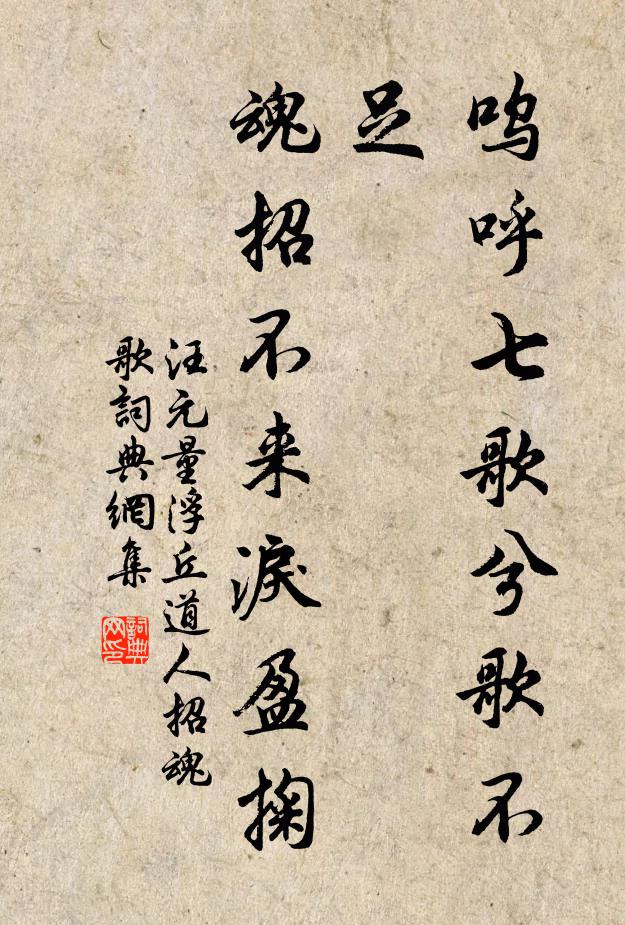 嗚呼七歌兮歌不
足
魂招不来淚盈掬
汪元量浮丘道人招魂
歌詞典網集
詞典
网印